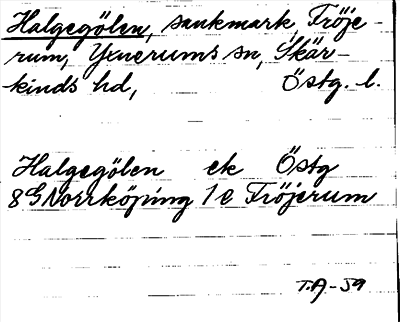 Halgegölen, sankmark, Fröje-
rum, Yxnerums sn, Skär-
kinds hd, Östg. l.
Halgegölen ek Östg
8G Norrköping 1e Fröjerum
T.A-59